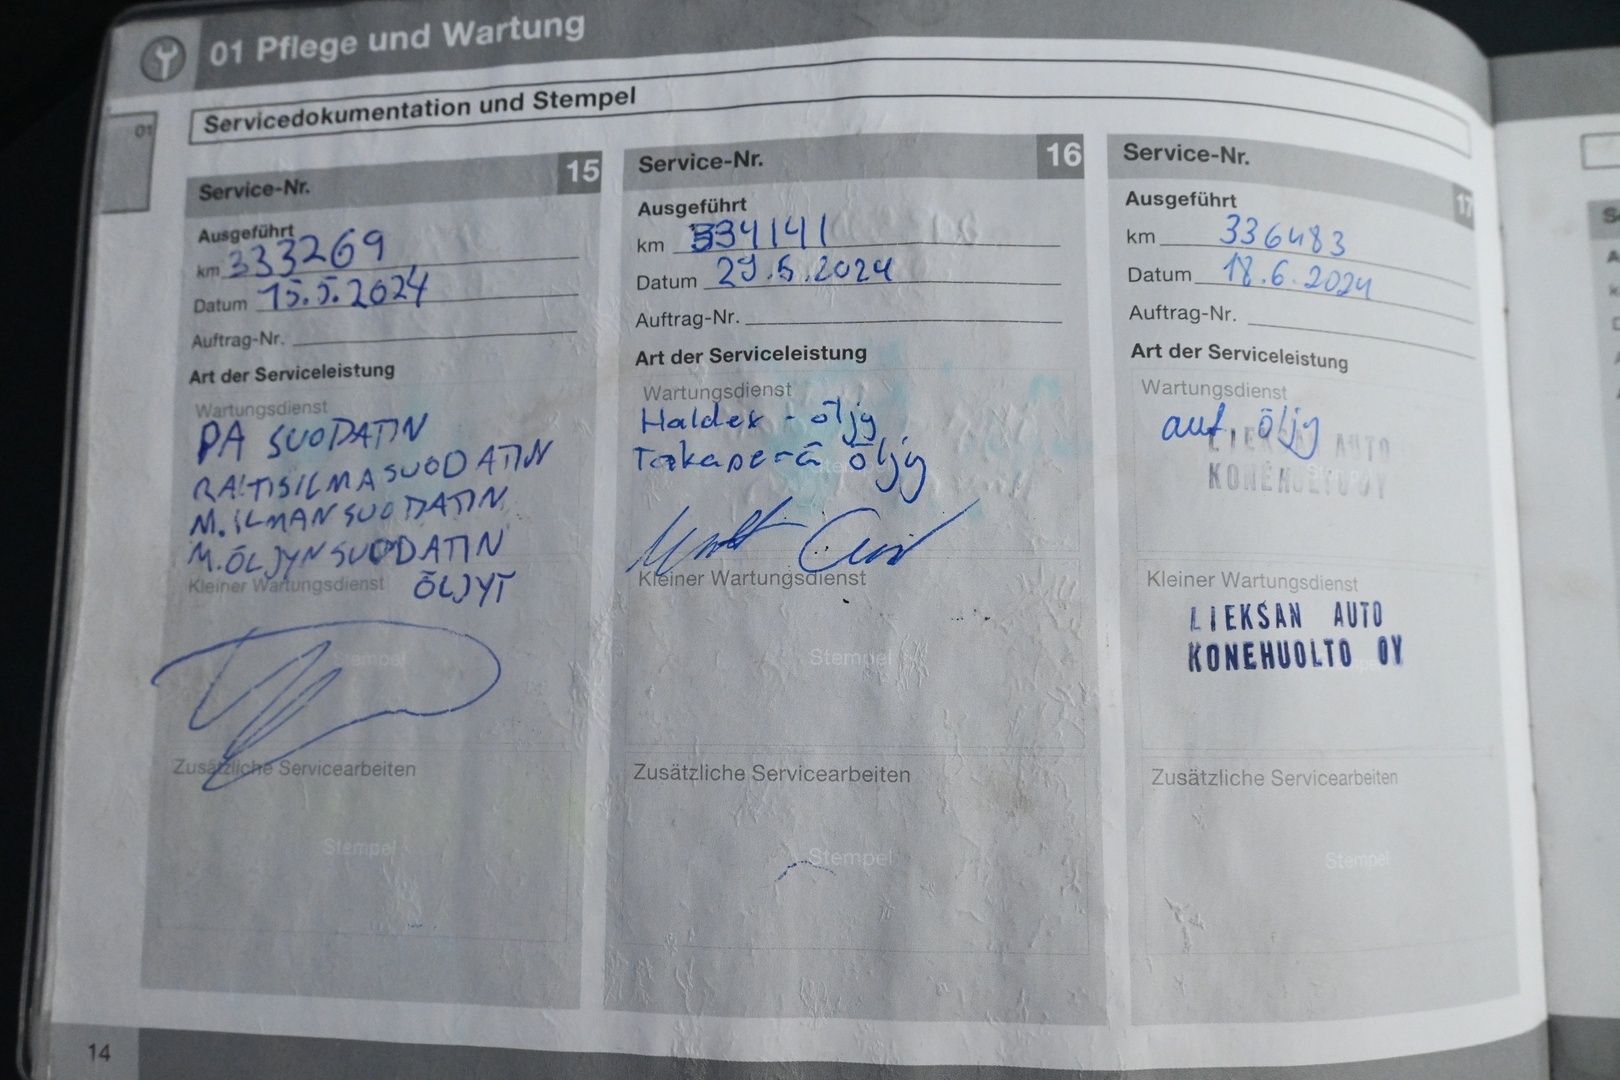 01 Pflege und Wartung
01
Servicedokumentation und Stempel
Service-Nr. 15
Ausgeführt
km 333269
Datum 15.5.2024
Auftrag-Nr.
Art der Serviceleistung
Wartungsdienst
PA SUODATIN
RAITISILMASUODATIN
M.ILMANSUODATIN
M.ÖLJYNSUODATIN
Kleiner Wartungsdienst
ÖLJYT
Stempel
Zusätzliche Servicearbeiten
Stempel
Service-Nr. 16
Ausgeführt
km 334141
Datum 29.5.2024
Auftrag-Nr.
Art der Serviceleistung
Wartungsdienst
Haldex - öljy
Takaperä öljy
Kleiner Wartungsdienst
Stempel
Zusätzliche Servicearbeiten
Stempel
Service-Nr. 17
Ausgeführt
km 336483
Datum 18.6.2024
Auftrag-Nr.
Art der Serviceleistung
Wartungsdienst
aut. öljy
LIEKSAN AUTO
KONEHUOLTO OY
Kleiner Wartungsdienst
LIEKSAN AUTO
KONEHUOLTO OY
Zusätzliche Servicearbeiten
Stempel
14